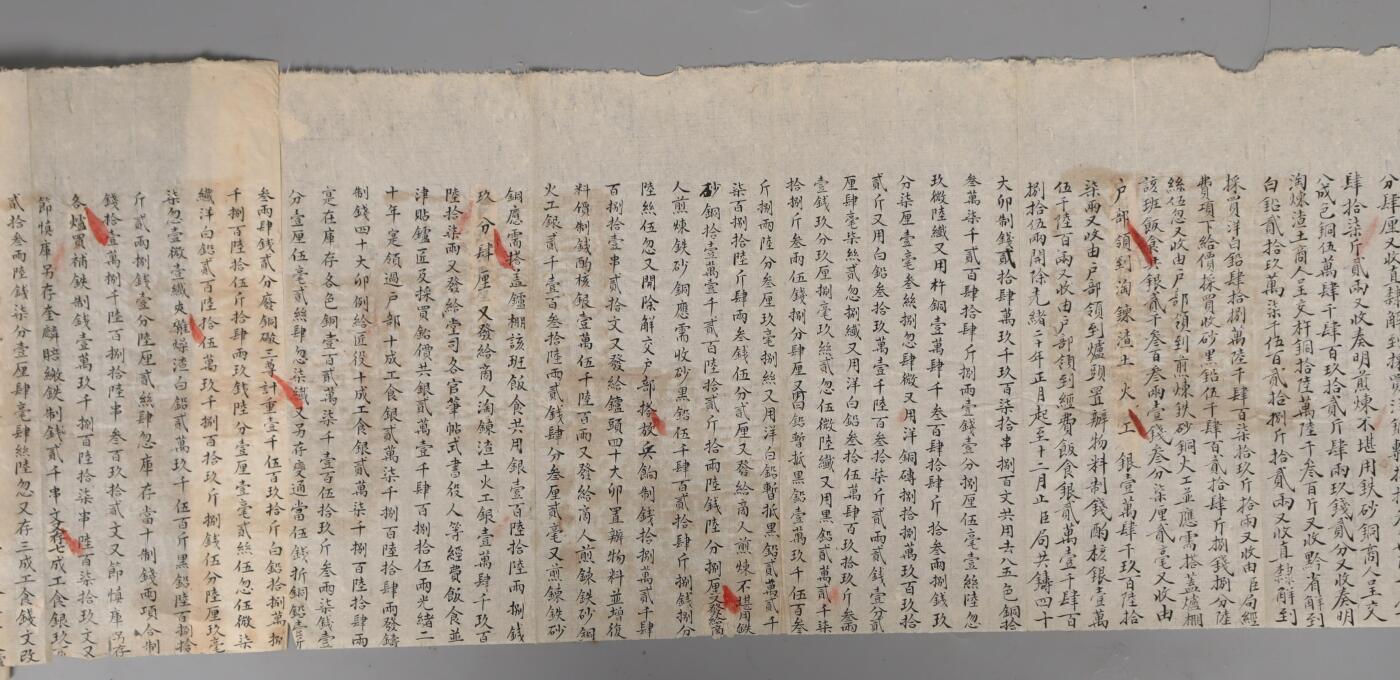 肆拾柒斤貳兩又收奏明煎煉不堪用鉄砂銅商人呈交
八成色銅伍萬肆千肆百玖拾貳斤肆兩玖錢貳分又收奏明
淘煉渣土商人呈交杵銅拾陸萬陸千叁百斤又收黔省解到
白鉛貳拾玖萬柒千伍百貳拾捌斤拾貳兩又收直隸解到
採買洋白鉛肆拾捌萬陸千肆百柒拾玖斤拾兩又收由臣局經
費項下給價採買收砂黑鉛伍千肆百貳拾肆斤捌錢捌分陸
絲伍忽又收由户部領到煎煉鉄砂銅火工並應需搭蓋爐棚
該班飯食共銀貳千叁百叁兩壹錢叁分柒厘貳毫又收由
户部領到淘鍊渣土火工銀壹萬肆千玖百陸拾
柒兩又收由户部領到爐頭置辦物料制錢酌核銀壹萬
伍千陸百兩又收由户部領到經費飯食銀貳萬壹千肆百
捌拾伍兩開除光緒二十年正月起至十二月止臣局共鑄四十
大卯制錢貳拾肆萬玖千玖百柒拾串捌百文共用去八五色銅拾
叁萬柒千貳百肆拾肆斤捌兩壹錢壹分捌厘伍毫壹絲陸忽
玖微陸纖又用杵銅壹萬肆千叁百捌拾肆斤拾叁兩捌錢玖
分柒厘壹毫叁絲捌忽肆微又用洋銅磚捌拾捌萬玖百玖拾
貳斤又用白鉛叁拾玖萬壹千陸百叁拾柒斤貳兩貳錢壹分貳
厘肆毫柒絲貳忽捌纖又用洋白鉛叁拾伍萬肆百玖拾玖斤叁兩
壹錢玖分玖厘捌毫玖絲貳忽伍微陸纖又用黑鉛貳萬貳千柒
拾捌斤叁兩伍錢捌分肆厘又用白鉛暫抵黑鉛壹萬玖千伍百叁
斤捌兩陸分叁厘玖毫捌絲又用洋白鉛暫抵黑鉛貳萬貳千
柒百捌拾陸斤肆兩叁錢伍分貳厘又發給商人煎煉不堪用鉄
砂銅拾壹萬壹千貳百陸拾貳斤拾兩陸錢陸分捌厘又發給商
人煎煉鉄砂銅應需收砂黑鉛伍千肆百貳拾肆斤捌錢捌分
陸絲伍忽又開除解交户部搭放兵餉制錢拾捌萬貳千肆
百捌拾壹串貳拾文又發給鑪頭四十大卯置辦物料並增復
料價制錢酌核銀壹萬伍千陸百兩又發給商人煎鍊鉄砂銅
火工銀貳千壹百叁拾陸兩貳錢肆分叁厘貳毫又煎鍊鉄砂
銅應需搭蓋鑪棚該班飯食共用銀壹百陸拾陸兩捌錢
玖分肆厘又發給商人淘鍊渣土火工銀壹萬肆千玖百
陸拾柒兩又發給堂司各官筆帖式書役人等經費飯食並
津貼鑪匠及採買鉛價共銀貳萬壹千肆百捌拾伍兩光緒二
十年寔領過户部十成工食銀貳萬柒千捌百陸拾肆兩發鑄
制錢四十大卯例給匠役十成工食銀貳萬柒千捌百陸拾肆兩
寔在庫存各色銅壹百貳萬柒千壹百伍拾玖斤叁兩柒錢壹
分壹厘伍毫貳絲肆忽柒纖又另存變通當伍錢折銅鉛壹斤
叁兩肆錢貳分廢銅礅三尊計重壹千伍百玖拾斤白鉛拾捌萬捌
千捌百陸拾伍斤拾肆兩玖錢陸分壹厘壹毫貳絲伍忽伍微柒
纖洋白鉛貳百陸拾伍萬玖千捌百拾玖斤捌錢伍分陸厘玖毫
柒忽壹微壹纖爽雜燥渣白鉛貳萬玖千伍百斤黑鉛陸百捌拾
斤貳兩捌錢壹分陸厘貳絲肆忽庫存當十制錢兩項合制
錢拾壹萬捌千陸百捌拾陸串叁百玖拾貳文又節慎庫另存
各爐買補鉄制錢壹萬玖千捌百陸拾柒串陸百柒拾玖文又
節慎庫另存奎麟賠繳鉄制錢貳千串文又存七成工食銀玖百
貳拾叁兩陸錢柒分壹厘肆毫肆絲陸忽又存三成工食錢文改